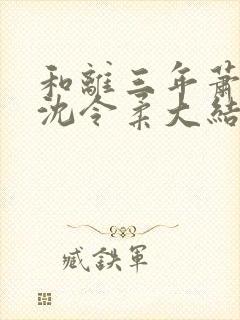 和離三年蕭
沈令柔大結
臧鉄軍